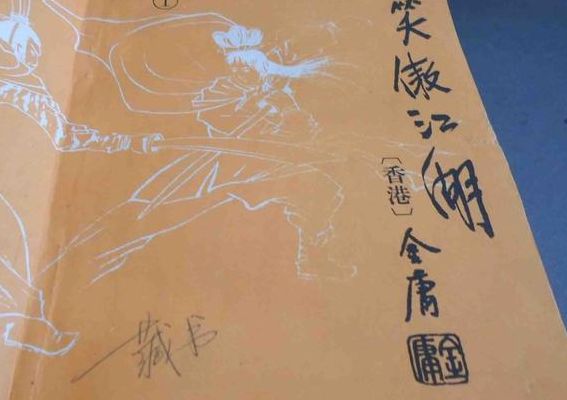 ①
笑傲江湖
〔香港〕
金庸
金庸
藏书